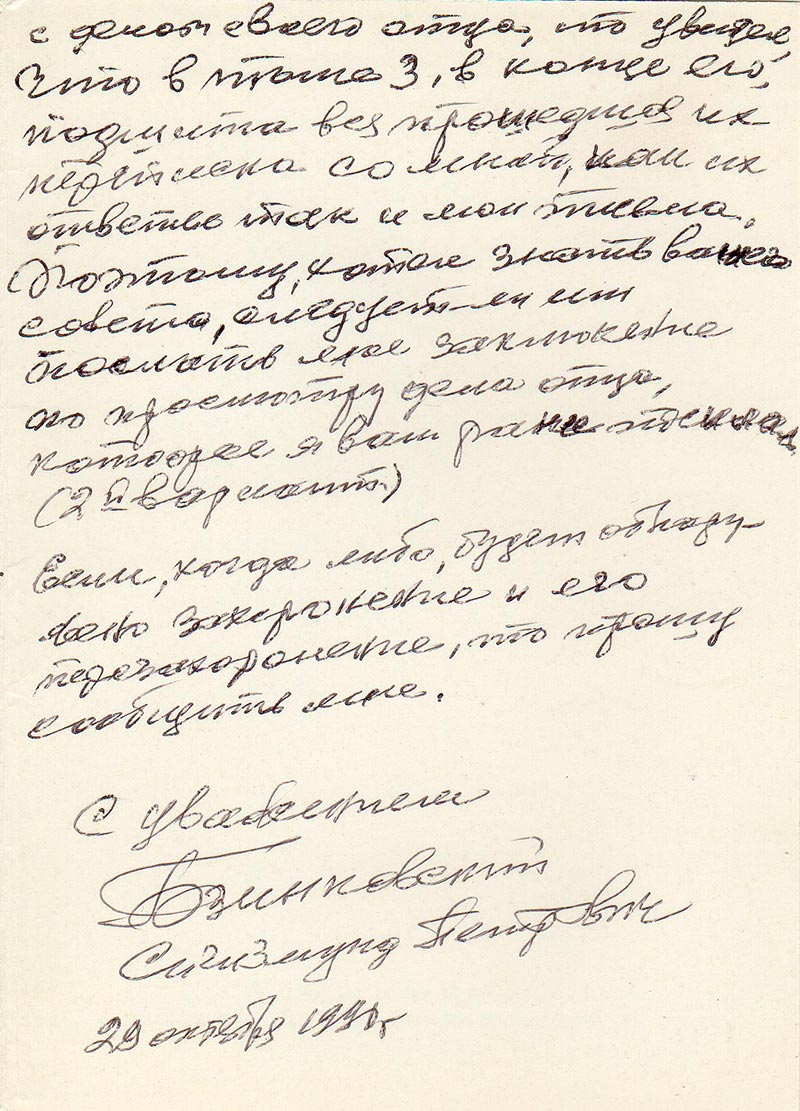 с делом своего отца, то увидел,
что в томе 3, в конце его,
подшита вся прошедшая их
переписка со мной, как их
ответы так и мои письма.
Поэтому, хотел знать вашего
совета, следует-ли им
послать мне заключение
по просмотру дела отца,
которое я вам ранее посылал
(2й вариант)
Если, когда либо, будет обнару-
жено захоронение и его
перезахоронение, то прошу
сообщить мне.
С уважением
Бзинковский
Сигизмунд Петрович
29 октября 1990г